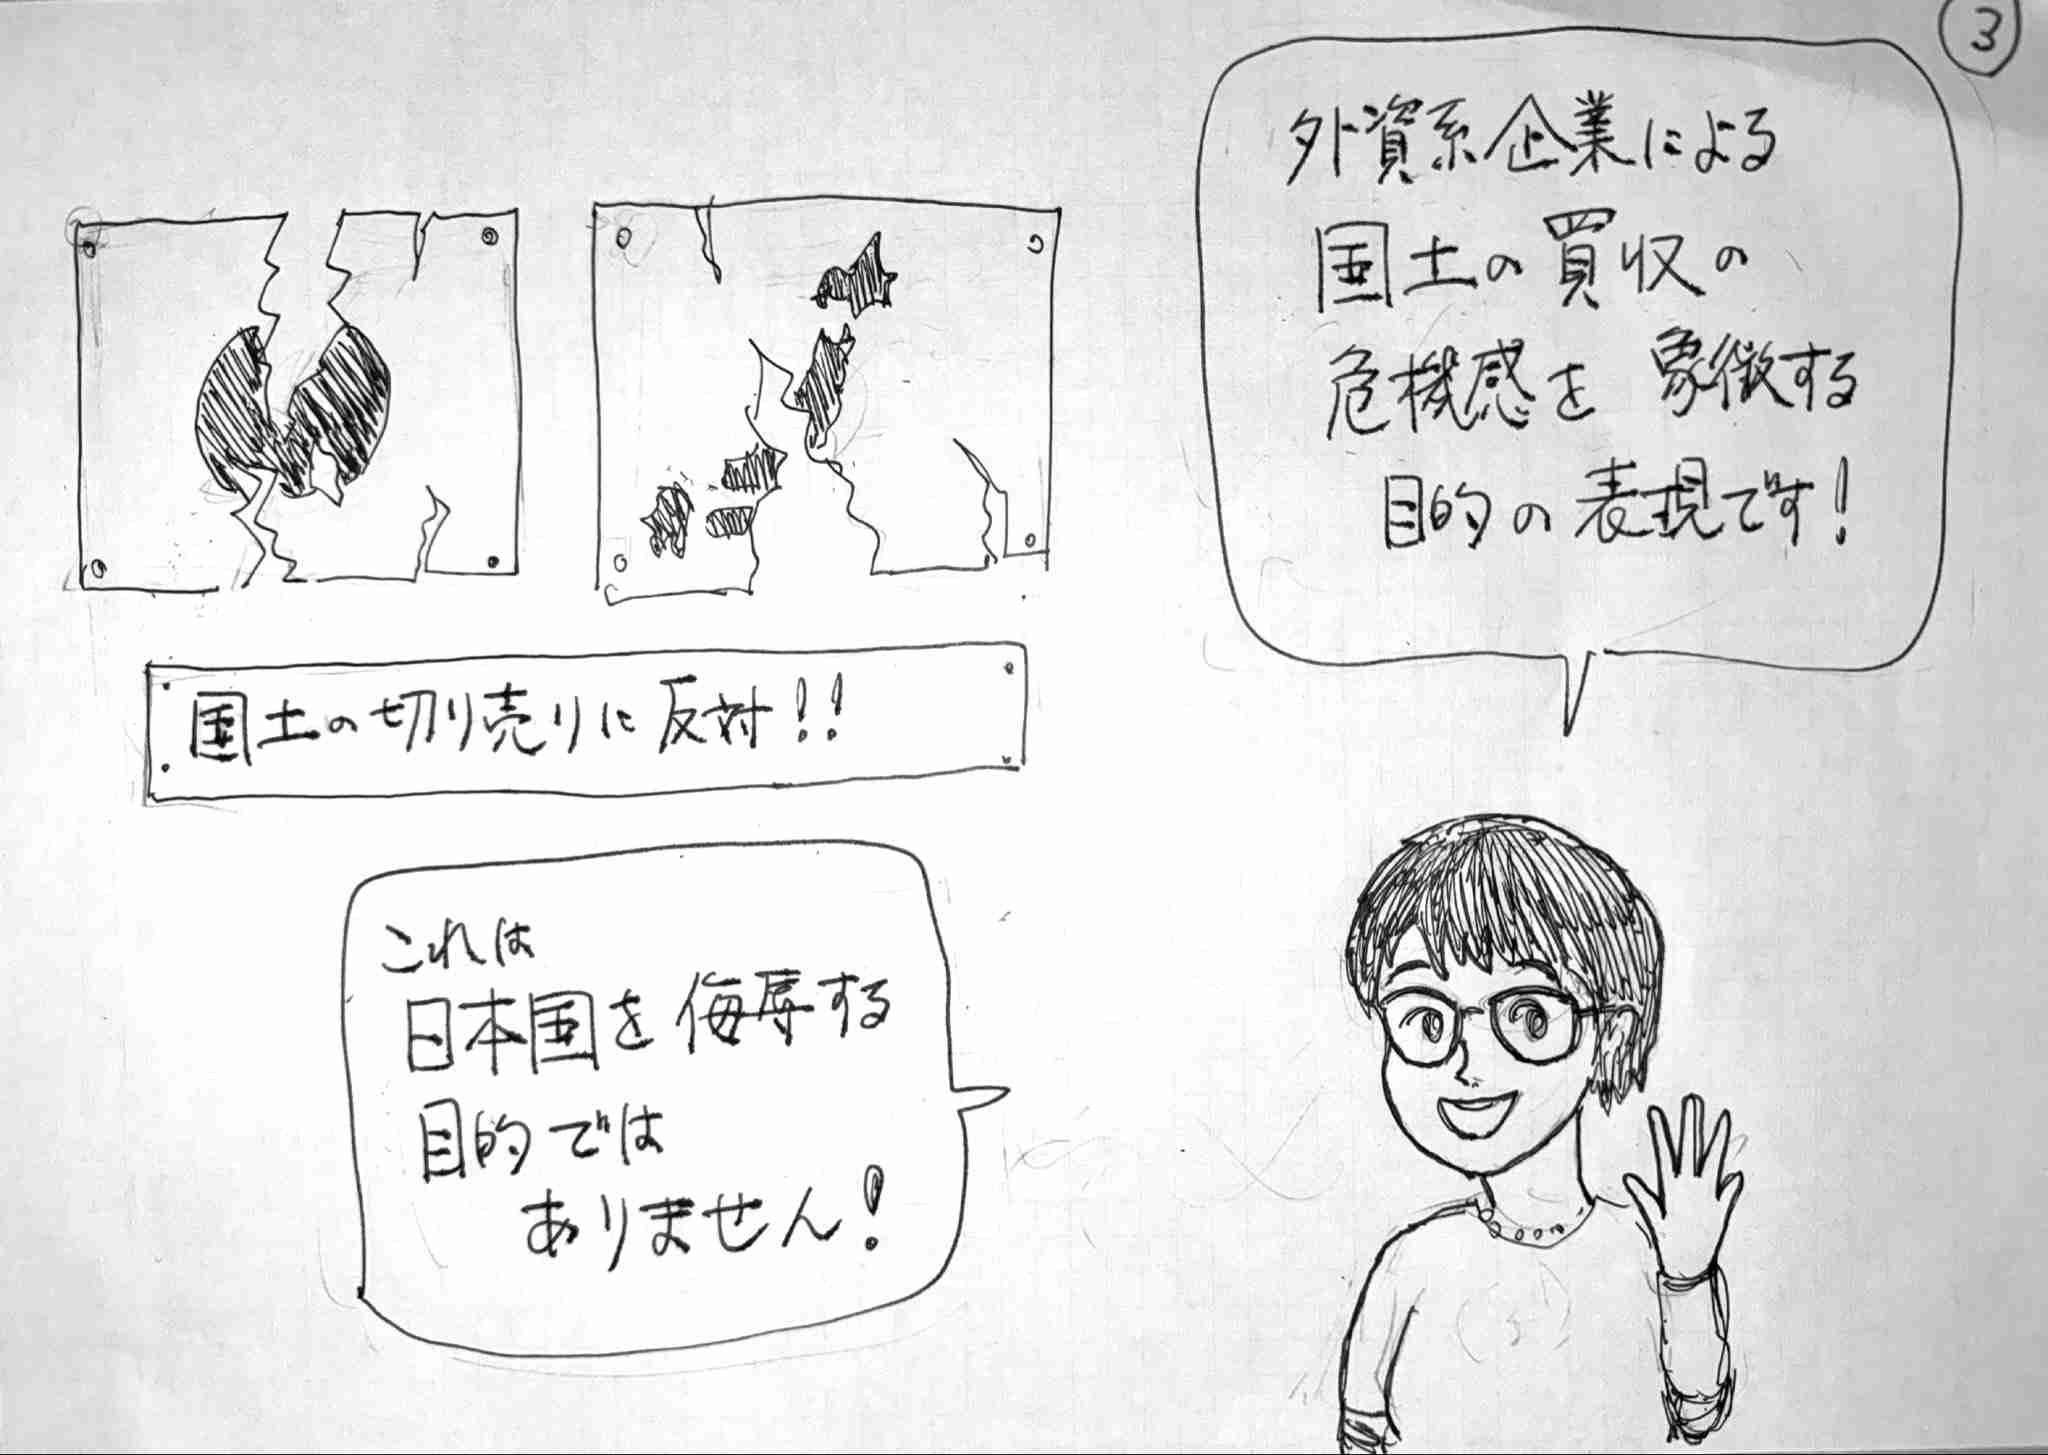 3
外資系企業による
国土の買収の
危機感を象徴する
目的の表現です!
国土の切り売りに反対!!
これは
日本国を侮辱する
目的では
ありません!